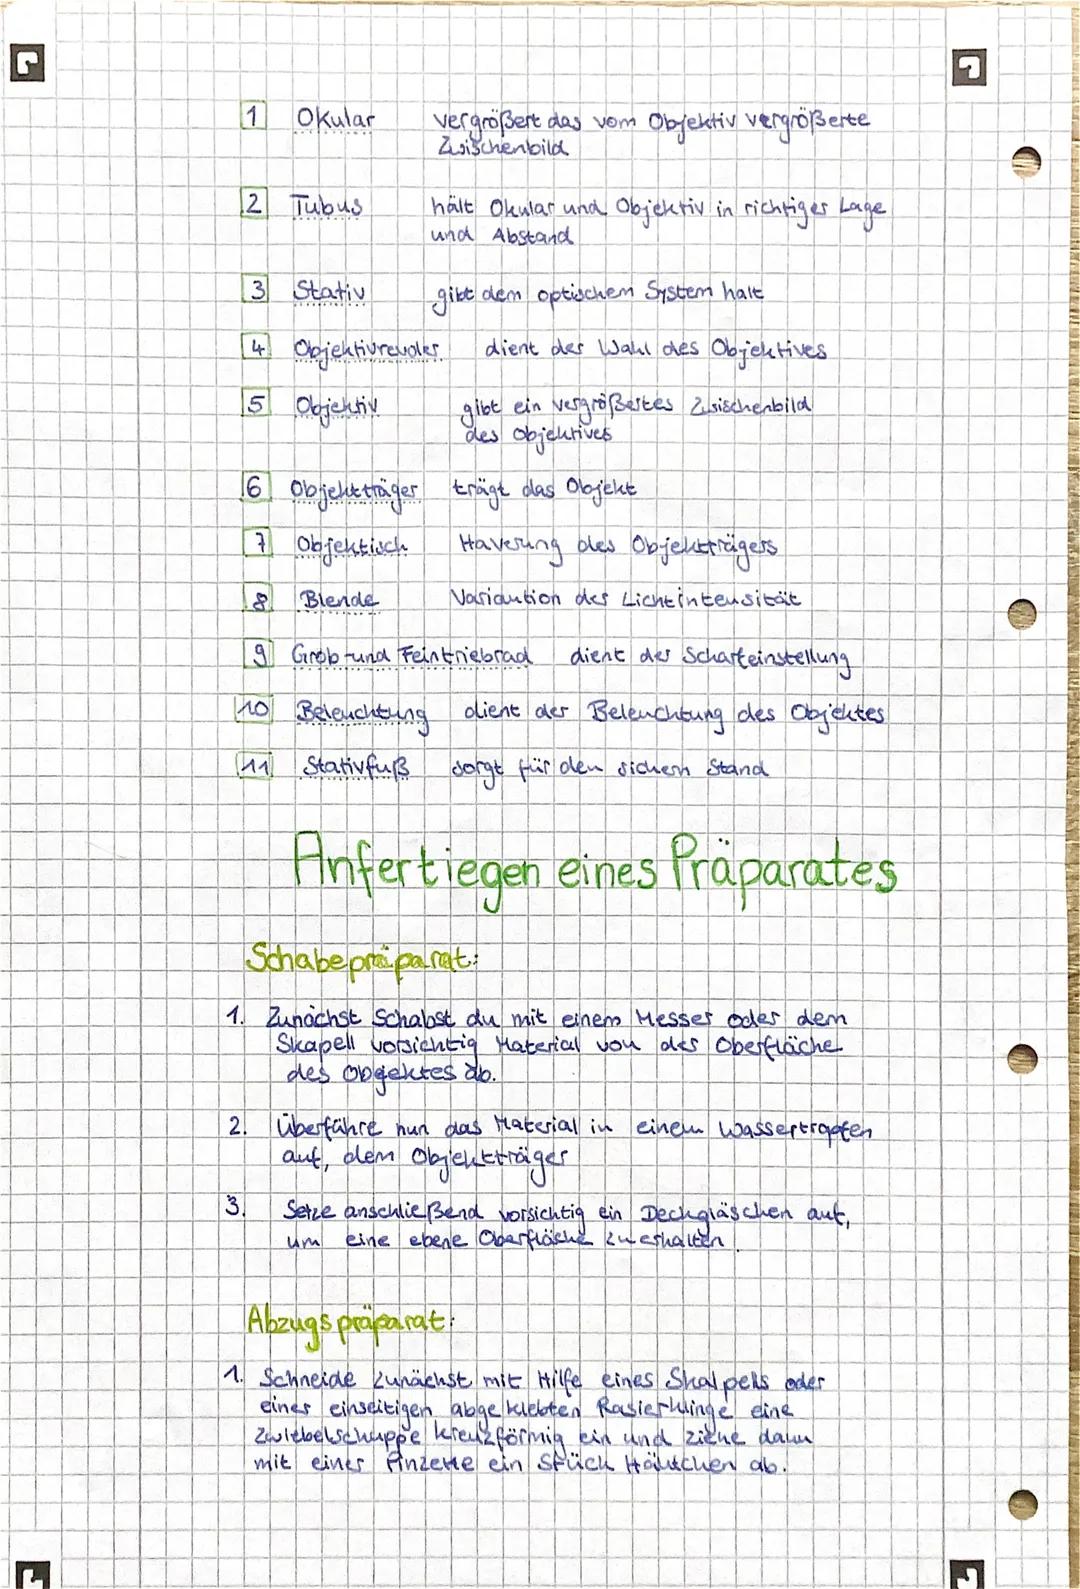 1 Okular vergrößert das vom Objektiv vergrößerte
Zwischenbild
2 Tubus hält Okular und Objektiv in richtiger Lage
und Abstand
3 Stativ gibt dem optischem System halt
4 Objektivrevoler dient der Wahl des Objektives
5 Objektiv gibt ein vergrößertes Zwischenbild
des Objektives
6 Objektträger trägt das Objekt
7 Objektisch Haverung des Objektträgers
8 Blende Variaution der Lichtintensität
9 Grob-und Feintriebrad dient der Scharfeinstellung
10 Beleuchtung dient der Beleuchtung des Objektes
11 Stativfuß sorgt für den sichern Stand
Anfertiegen eines Präparates
Schabepräparat:
1. Zunächst Schabst du mit einem Messer oder dem
Skapell vorsichtig Material von der Oberfläche
des Obgektes ab.
2. Überführe nun das Material in einem Wassertropfen
auf, dem Objektträger
3. Setze anschließend vorsichtig ein Deckgläschen auf,
um eine ebene Oberfläche zu erhalten.
Abzugspräparat:
1. Schneide zunächst mit Hilfe eines Skalpells oder
einer einseitigen abgeklebten Rasierklinge eine
Zwiebelschuppe kreuzförmig ein und ziehe dann
mit einer Pinzette ein Stück Häutchen ab.